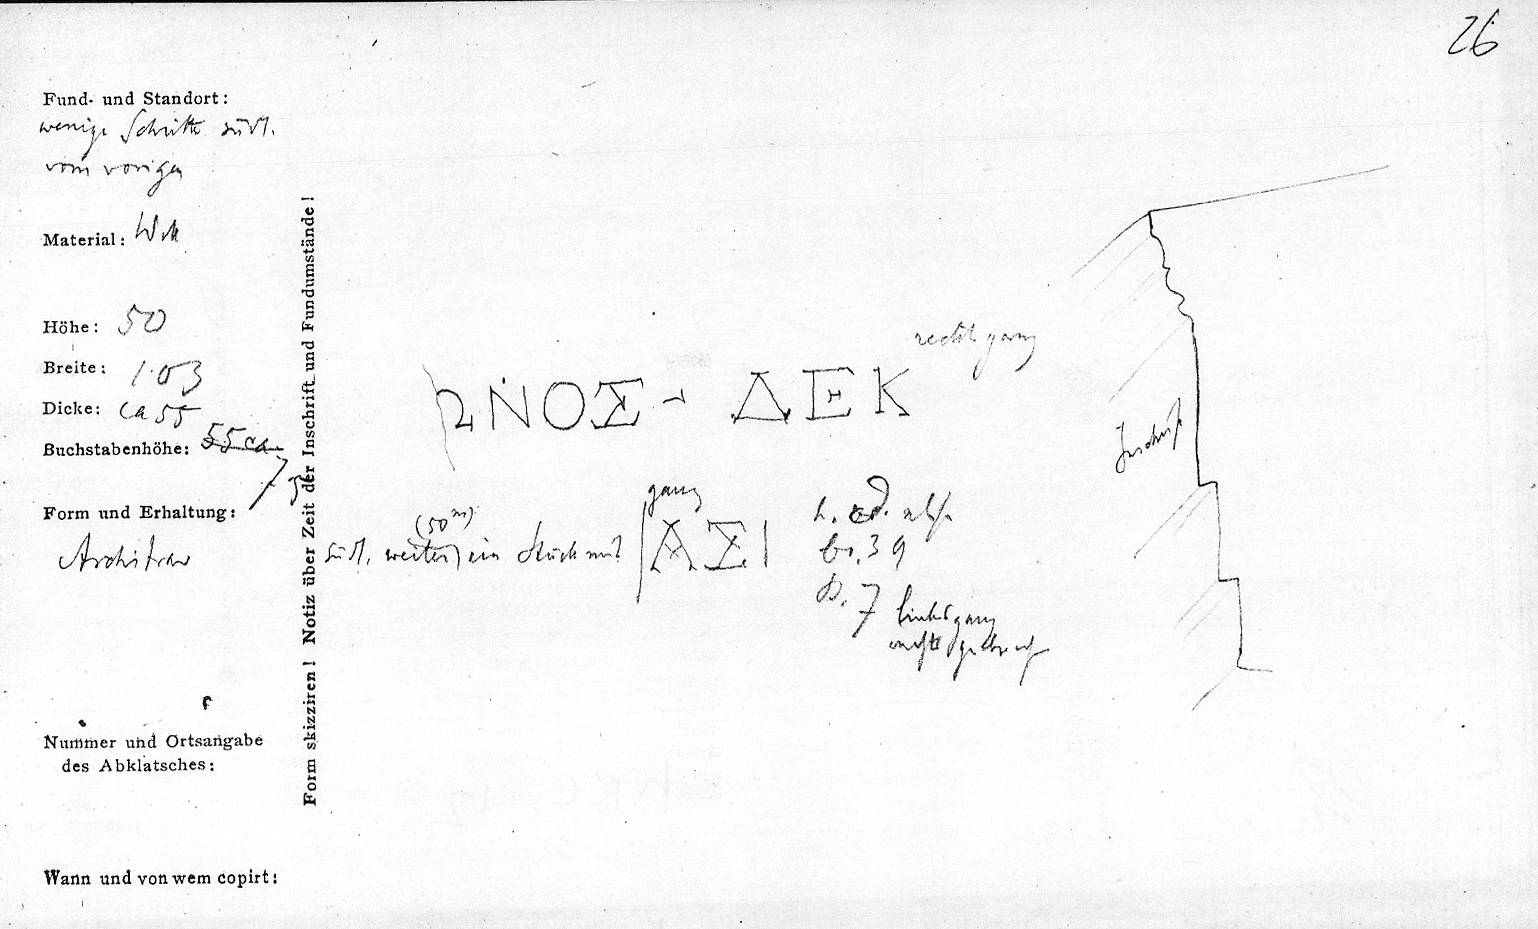 26
Fund- und Standort:
wenige Schritte südl.
vom vorigen
Material:
Höhe: 50
Breite: 1.03
Dicke: ca 55
Buchstabenhöhe: 55 ca
75
Form und Erhaltung:
Architrav
Nummer und Ortsangabe
des Abklatsches:
Wann und von wem copirt:
Form skizziren! Notiz über Zeit der Inschrift und Fundumstände!
ΩΝΟΣ - ΔΕΚ
rechts ganz
Inschrift
ganz
(50 m)
südl. weiter ein Stück mit ΑΣΙ
br. 39
D. 7
links ganz